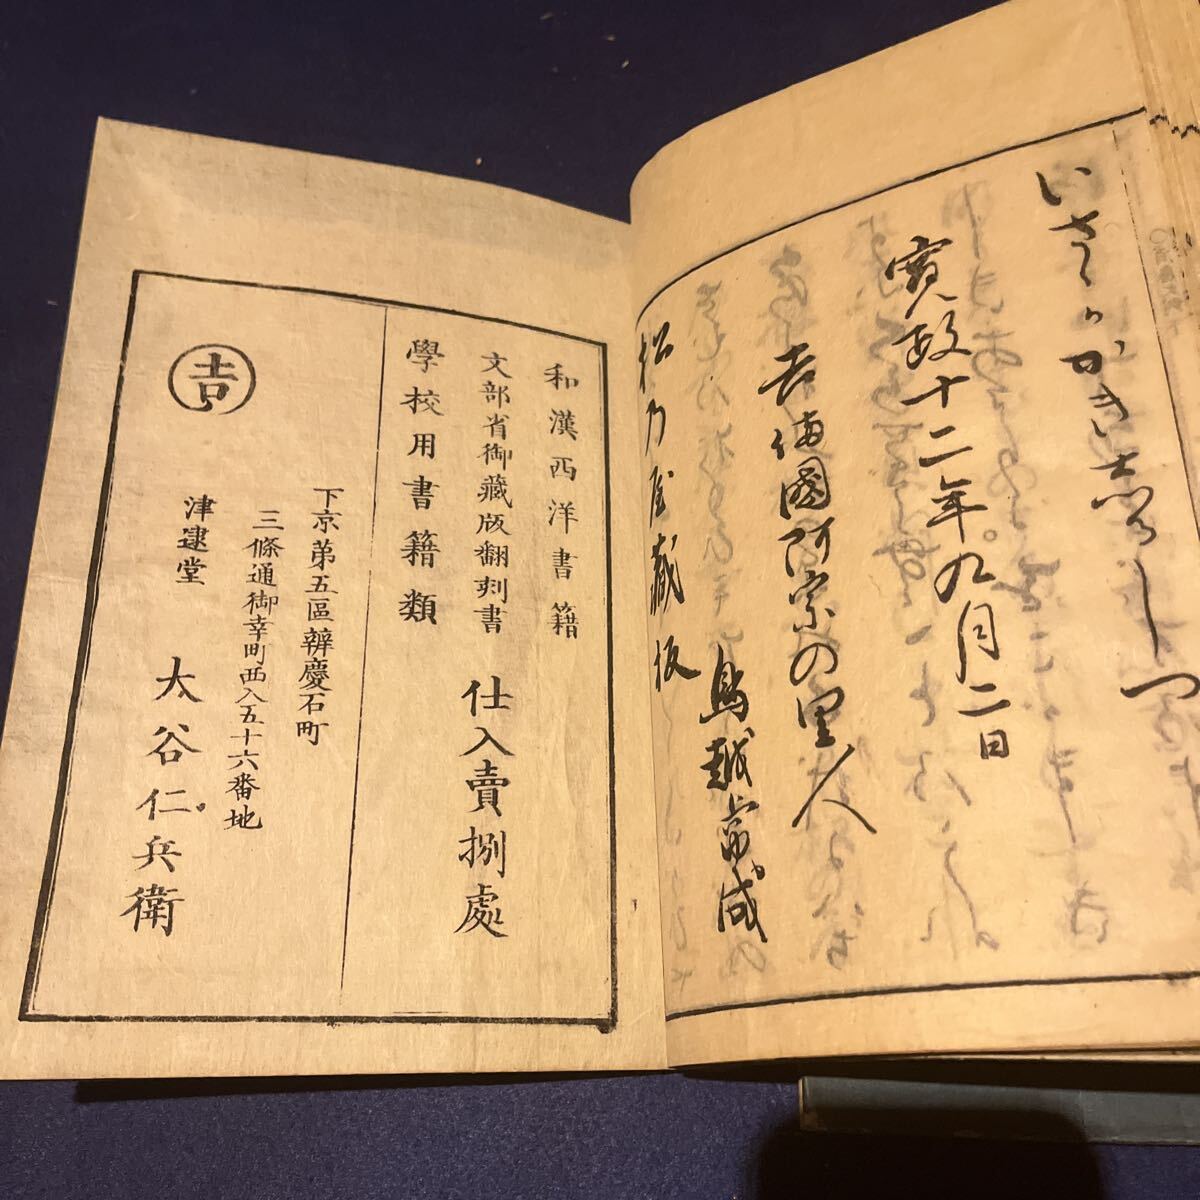 いさゝかかきしるしつ
寛政十二年九月二日
吉備國阿宗の里人
鳥越常成
松乃屋蔵板
和漢西洋書籍
文部省御藏版翻刻書
仕入賣捌處
學校用書籍類
下京第五區辨慶石町
三條通御幸町西入五十六番地
津逮堂
大谷仁兵衛
吉